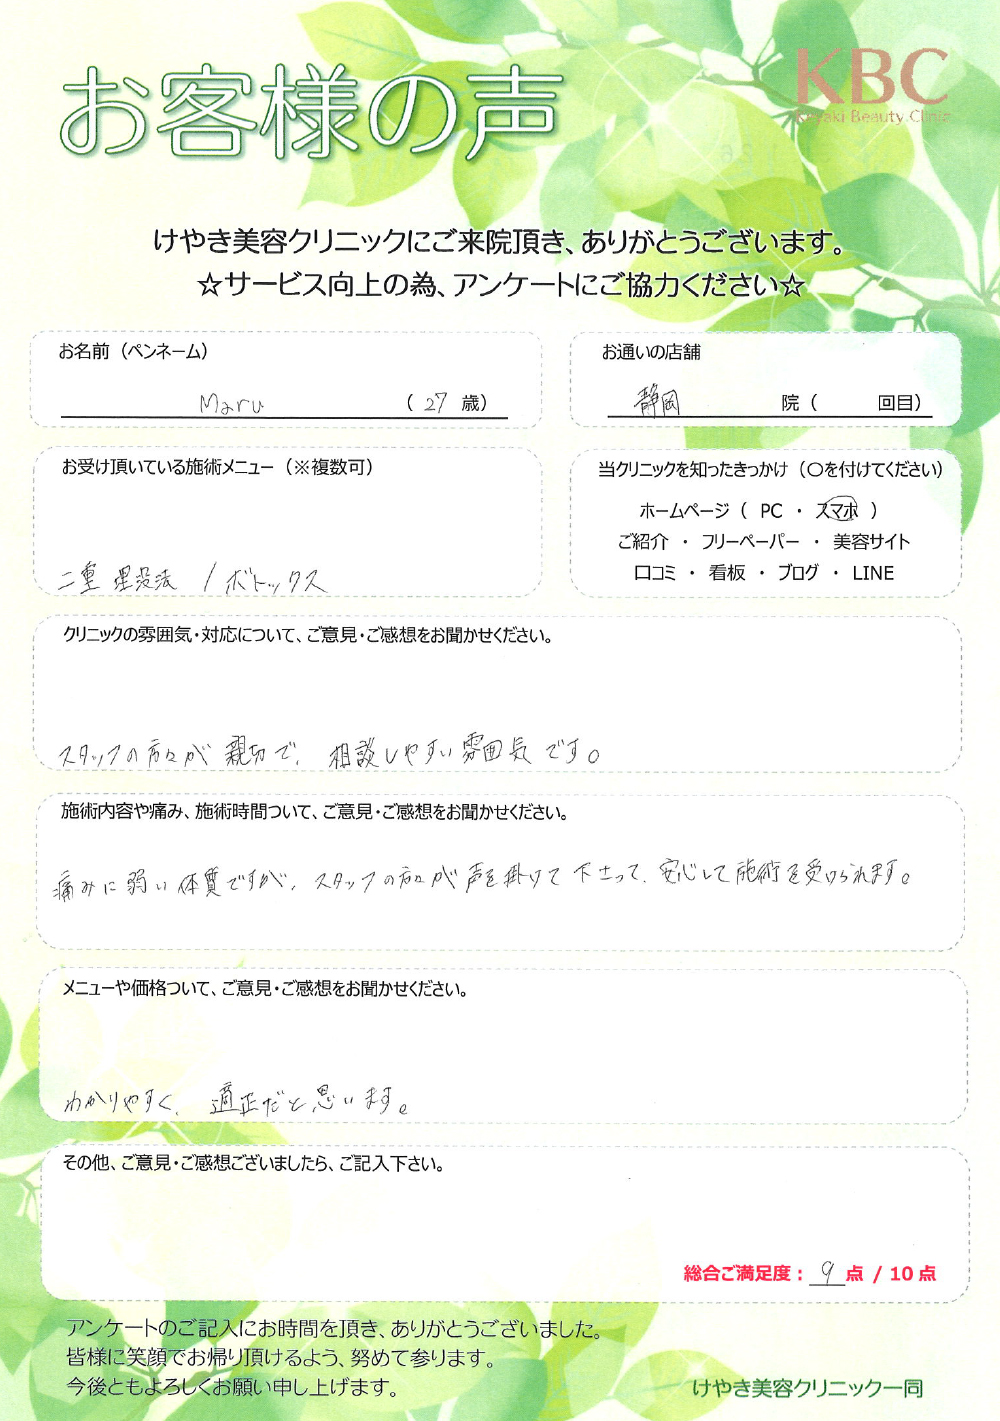 お客様の声
KBC
Keyaki Beauty Clinic
けやき美容クリニックにご来院頂き、ありがとうございます。
☆サービス向上の為、アンケートにご協力ください☆
お名前（ペンネーム）
Maru （ 27 歳）
お通いの店舗
静岡 院（ 回目）
お受け頂いている施術メニュー（※複数可）
二重埋没法 / ボトックス
当クリニックを知ったきっかけ（〇を付けてください）
ホームページ（ PC ・ スマホ ）
ご紹介 ・ フリーペーパー ・ 美容サイト
口コミ ・ 看板 ・ ブログ ・ LINE
クリニックの雰囲気・対応について、ご意見・ご感想をお聞かせください。
スタッフの方々が親切で、相談しやすい雰囲気です。
施術内容や痛み、施術時間ついて、ご意見・ご感想をお聞かせください。
痛みに弱い体質ですが、スタッフの方々が声を掛けて下さって、安心して施術を受けられます。
メニューや価格ついて、ご意見・ご感想をお聞かせください。
わかりやすく、適正だと思います。
その他、ご意見・ご感想ございましたら、ご記入下さい。
総合ご満足度： 9 点 / 10 点
アンケートのご記入にお時間を頂き、ありがとうございました。
皆様に笑顔でお帰り頂けるよう、努めて参ります。
今後ともよろしくお願い申し上げます。
けやき美容クリニック一同